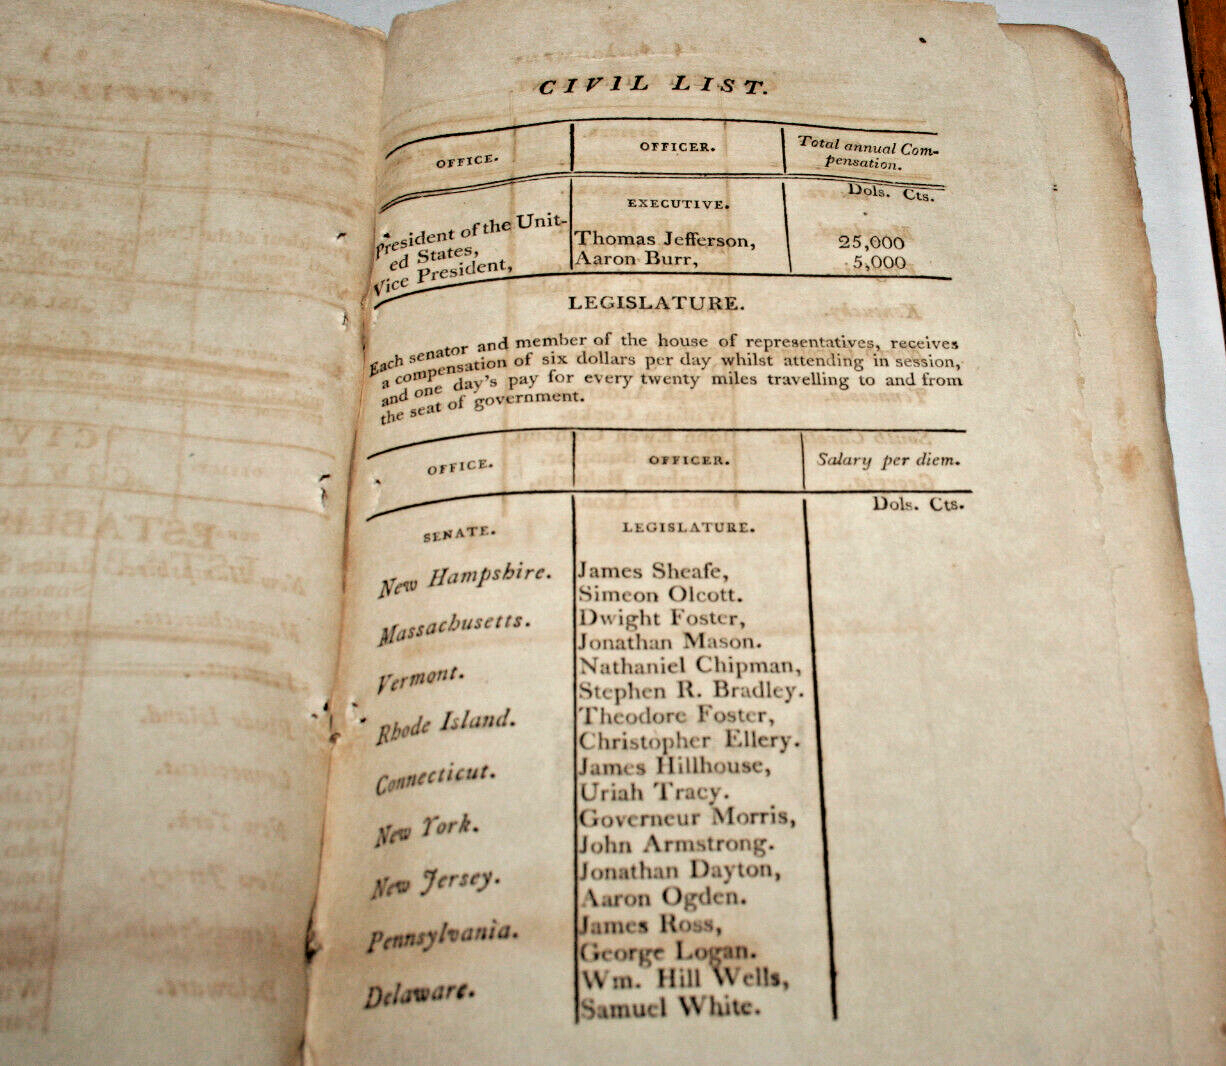 CIVIL LIST.
OFFICE. OFFICER. Total annual Com-
pensation.
Dols. Cts.
EXECUTIVE.
President of the Unit-
ed States, Thomas Jefferson, 25,000
Vice President, Aaron Burr, 5,000
LEGISLATURE.
Each senator and member of the house of representatives, receives
a compensation of six dollars per day whilst attending in session,
and one day's pay for every twenty miles travelling to and from
the seat of government.
OFFICE. OFFICER. Salary per diem.
Dols. Cts.
SENATE. LEGISLATURE.
New Hampshire. James Sheafe,
Simeon Olcott.
Massachusetts. Dwight Foster,
Jonathan Mason.
Vermont. Nathaniel Chipman,
Stephen R. Bradley.
Rhode Island. Theodore Foster,
Christopher Ellery.
Connecticut. James Hillhouse,
Uriah Tracy.
New York. Governeur Morris,
John Armstrong.
New Jersey. Jonathan Dayton,
Aaron Ogden.
Pennsylvania. James Ross,
George Logan.
Delaware. Wm. Hill Wells,
Samuel White.